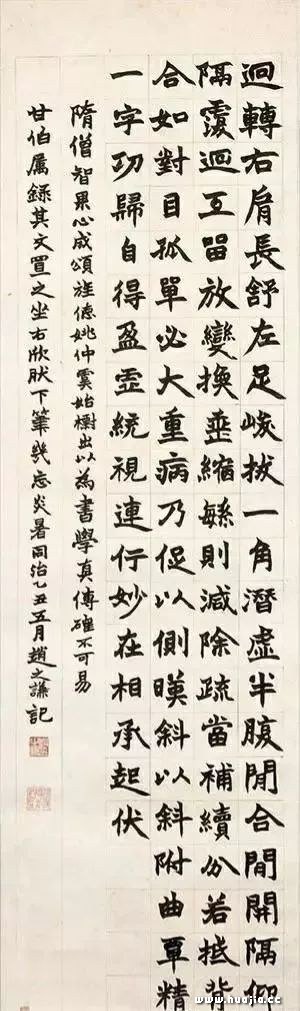 迴轉右肩長舒左足峻拔一角潛虛半腹閒合閒開隔仰
隔覆迴互畱放變換垂縮緐則減除疏當補續分若抵背
合如對目孤單必大重病乃促以側暎斜以斜附曲覃精
一字功歸自得盈虛統視連行妙在相承起伏
隋僧智果心成頌旌德姚仲虞始出以為書學真傳確不可易
甘伯屬錄其文置之坐右欣肰下筆幾忘炎暑同治乙丑五月趙之謙記
www.huajia.cc